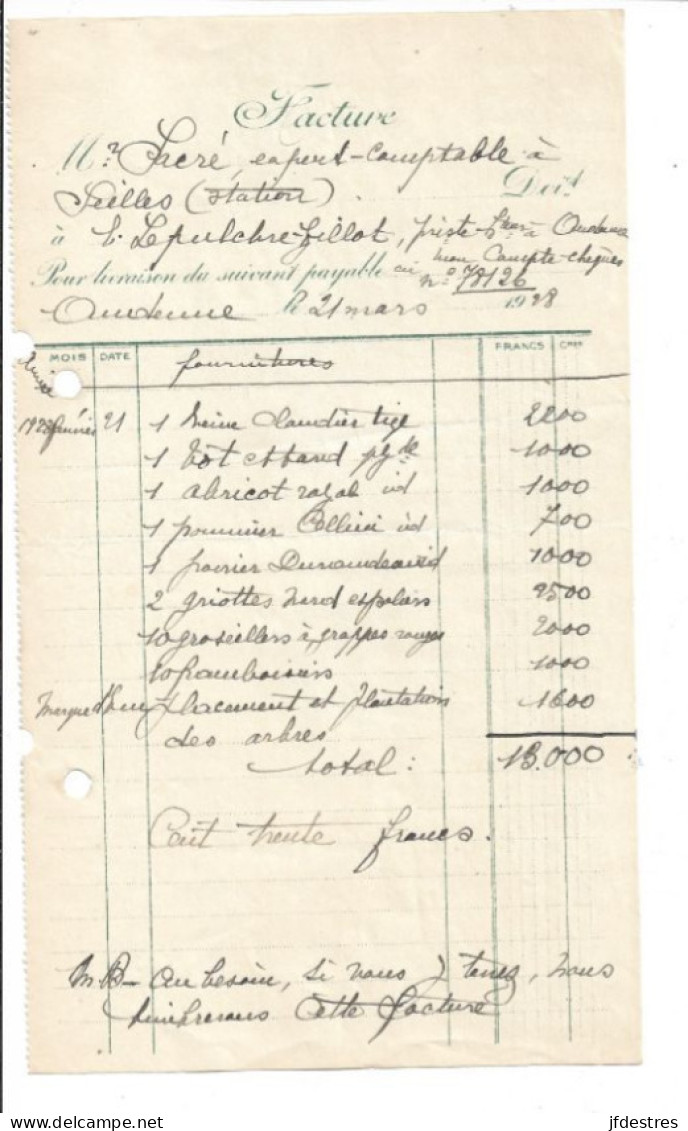 Facture
Mr Sacré, expert-comptable à
Seilles (station) Doit
à E. Lepulchre-Gillot, à Andenne
Pour livraison du suivant payable au mon Compte-chèques
No 78126
Andenne le 21 mars 1928
MOIS DATE fournitures FRANCS Cmes
Année
1928 Janvier 21 1 Reine Claudier tige 2200
1 pge de 1000
1 abricot royal id 1000
1 pommier id 700
1 poirier Durondeau id 1000
2 griottes nord espaliers 2500
10 groseillers à grappes rouges 2000
10 framboisiers 1000
placement et plantations 1600
des arbres
total : 13.000
Cent trente francs.
N.B- Au besoin, si vous y tenez, nous
timbrerons cette facture
jfdestres